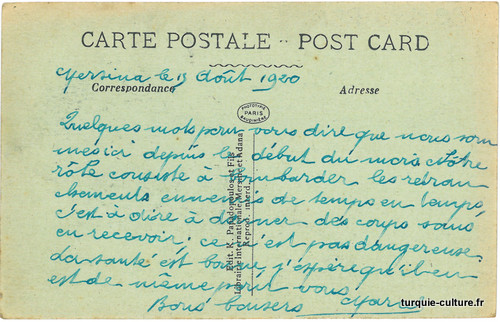 CARTE POSTALE - POST CARD
Mersina le 13 Août 1920
Correspondance
Adresse
PHOTOTYPIE
PARIS
Quelques mots pour vous dire que nous som
mes ici depuis le début du mois Nôtre
rôle consiste à bombarder les retran
chements ennemis de temps en temps,
c'est à dire à donner des coups sans
en recevoir; ce n'est pas dangereuse.
La santé est bonne, j'espère qu'il en
est de même pour vous
Bons baisers
Edit. K. Papadopoulos et Fils
Librairie Internationale, Mersine et Adana
Reprod. interd.
turquie-culture.fr